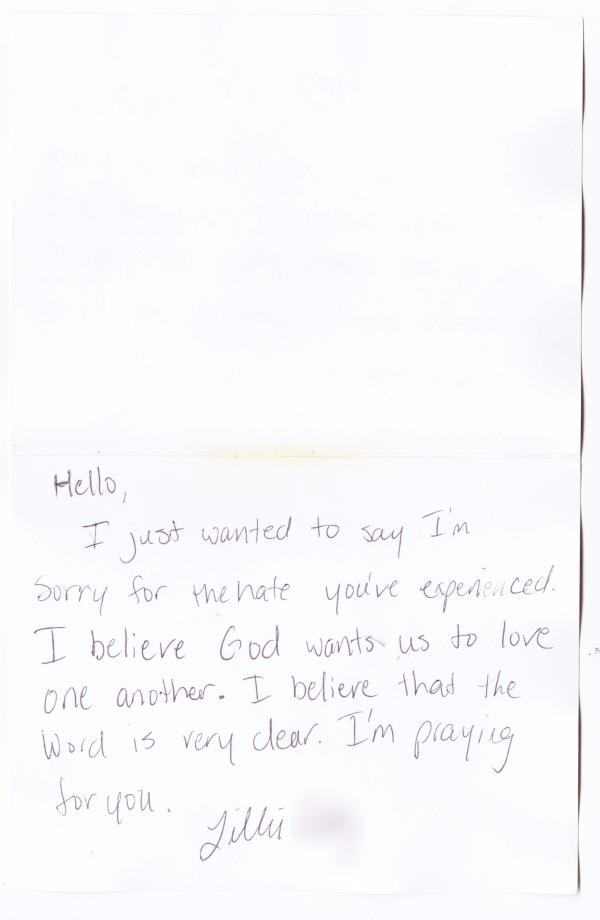 Hello,
I just wanted to say I'm
sorry for the hate you've experienced.
I believe God wants us to love
one another. I believe that the
Word is very clear. I'm praying
for you.
Lilli